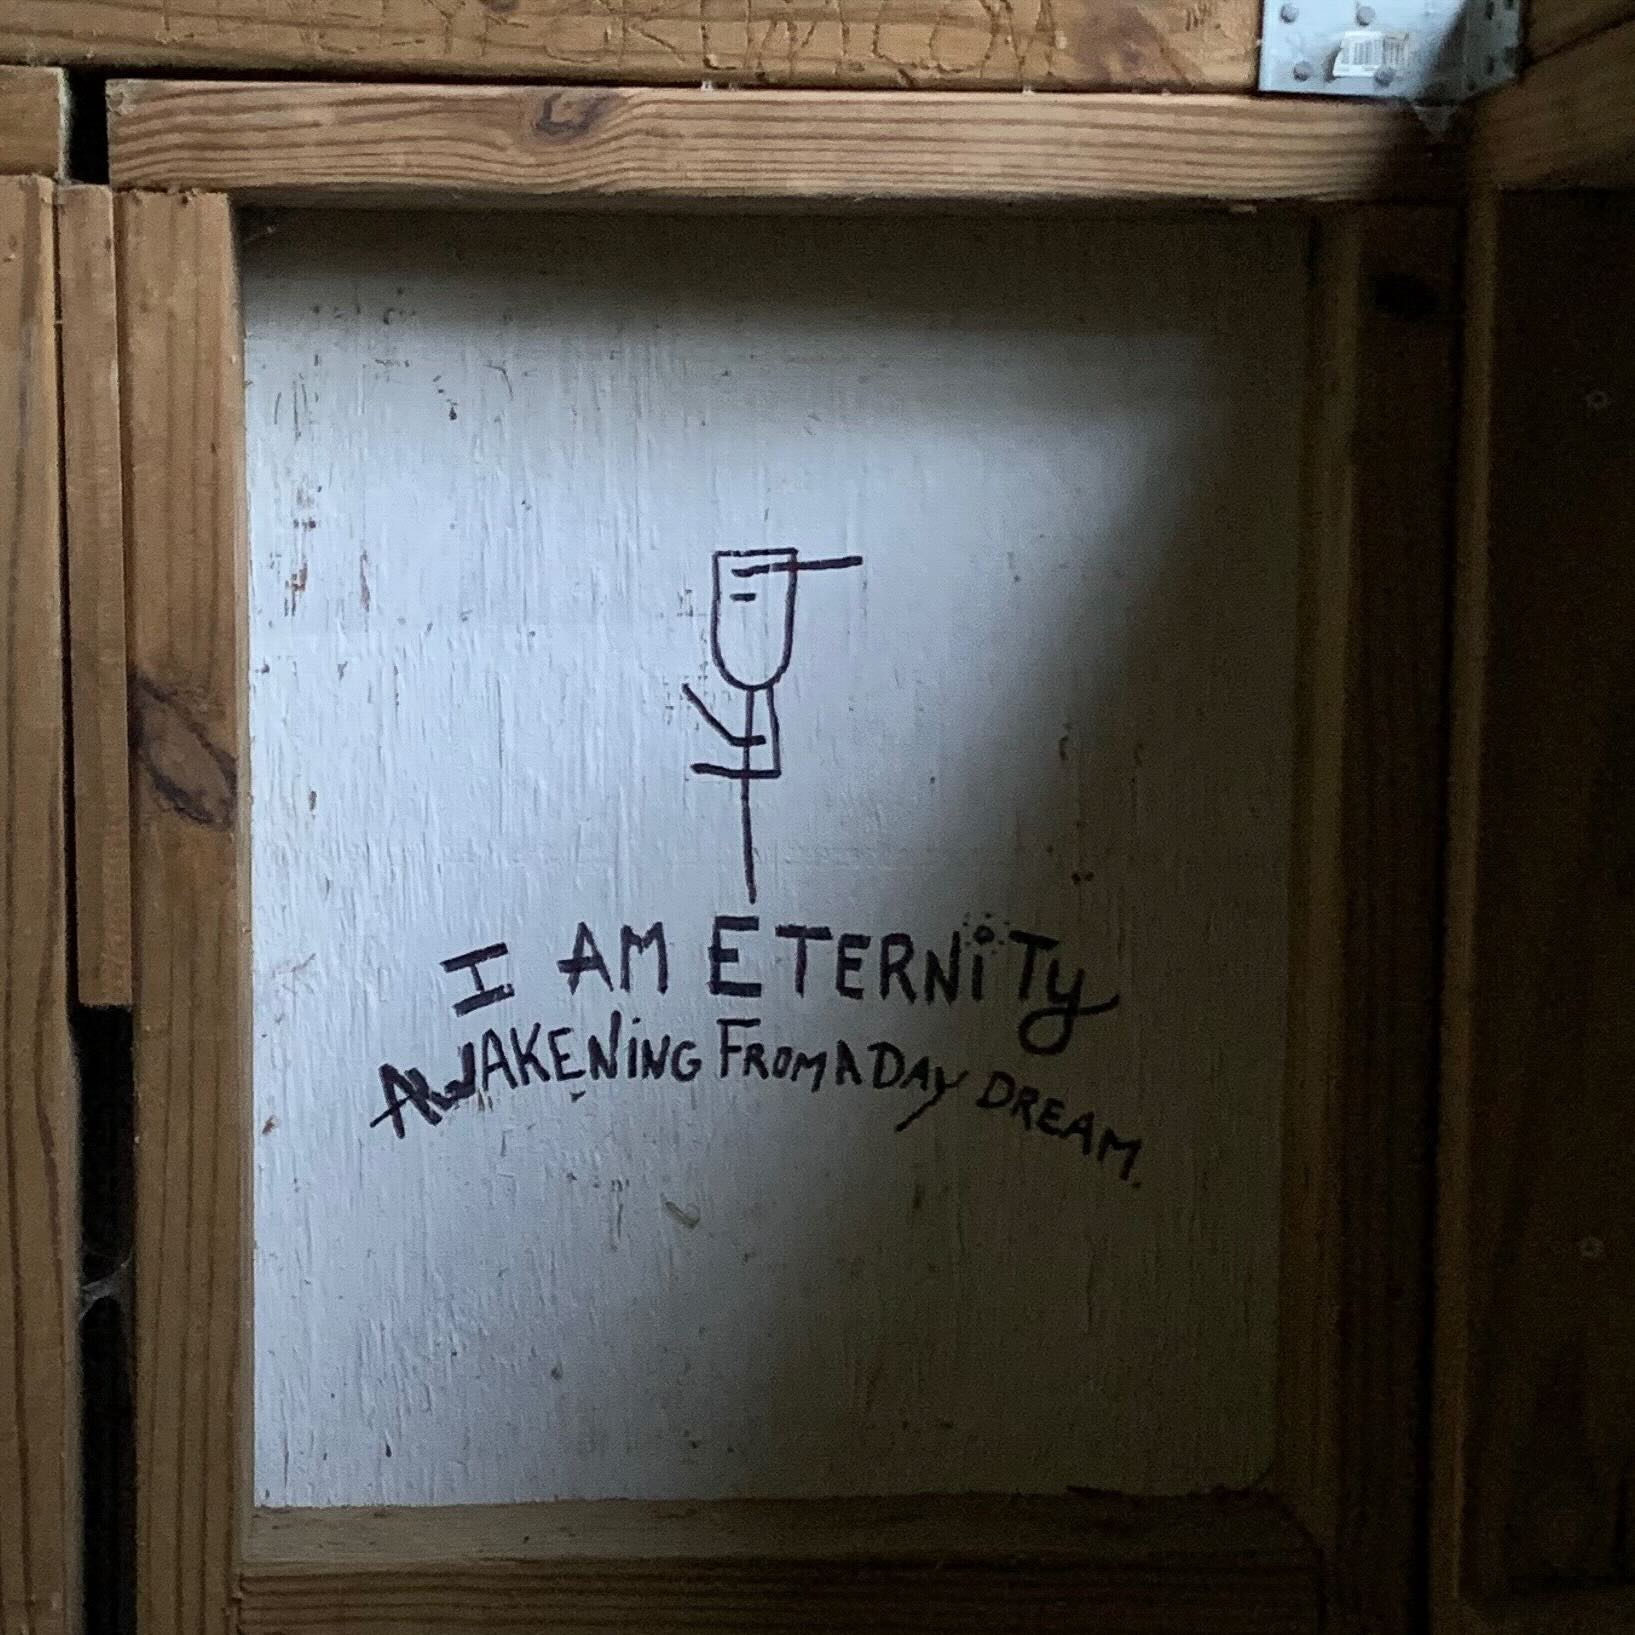 I AM ETERNiTy
AWAKENiNG FROM A DAY DREAM.